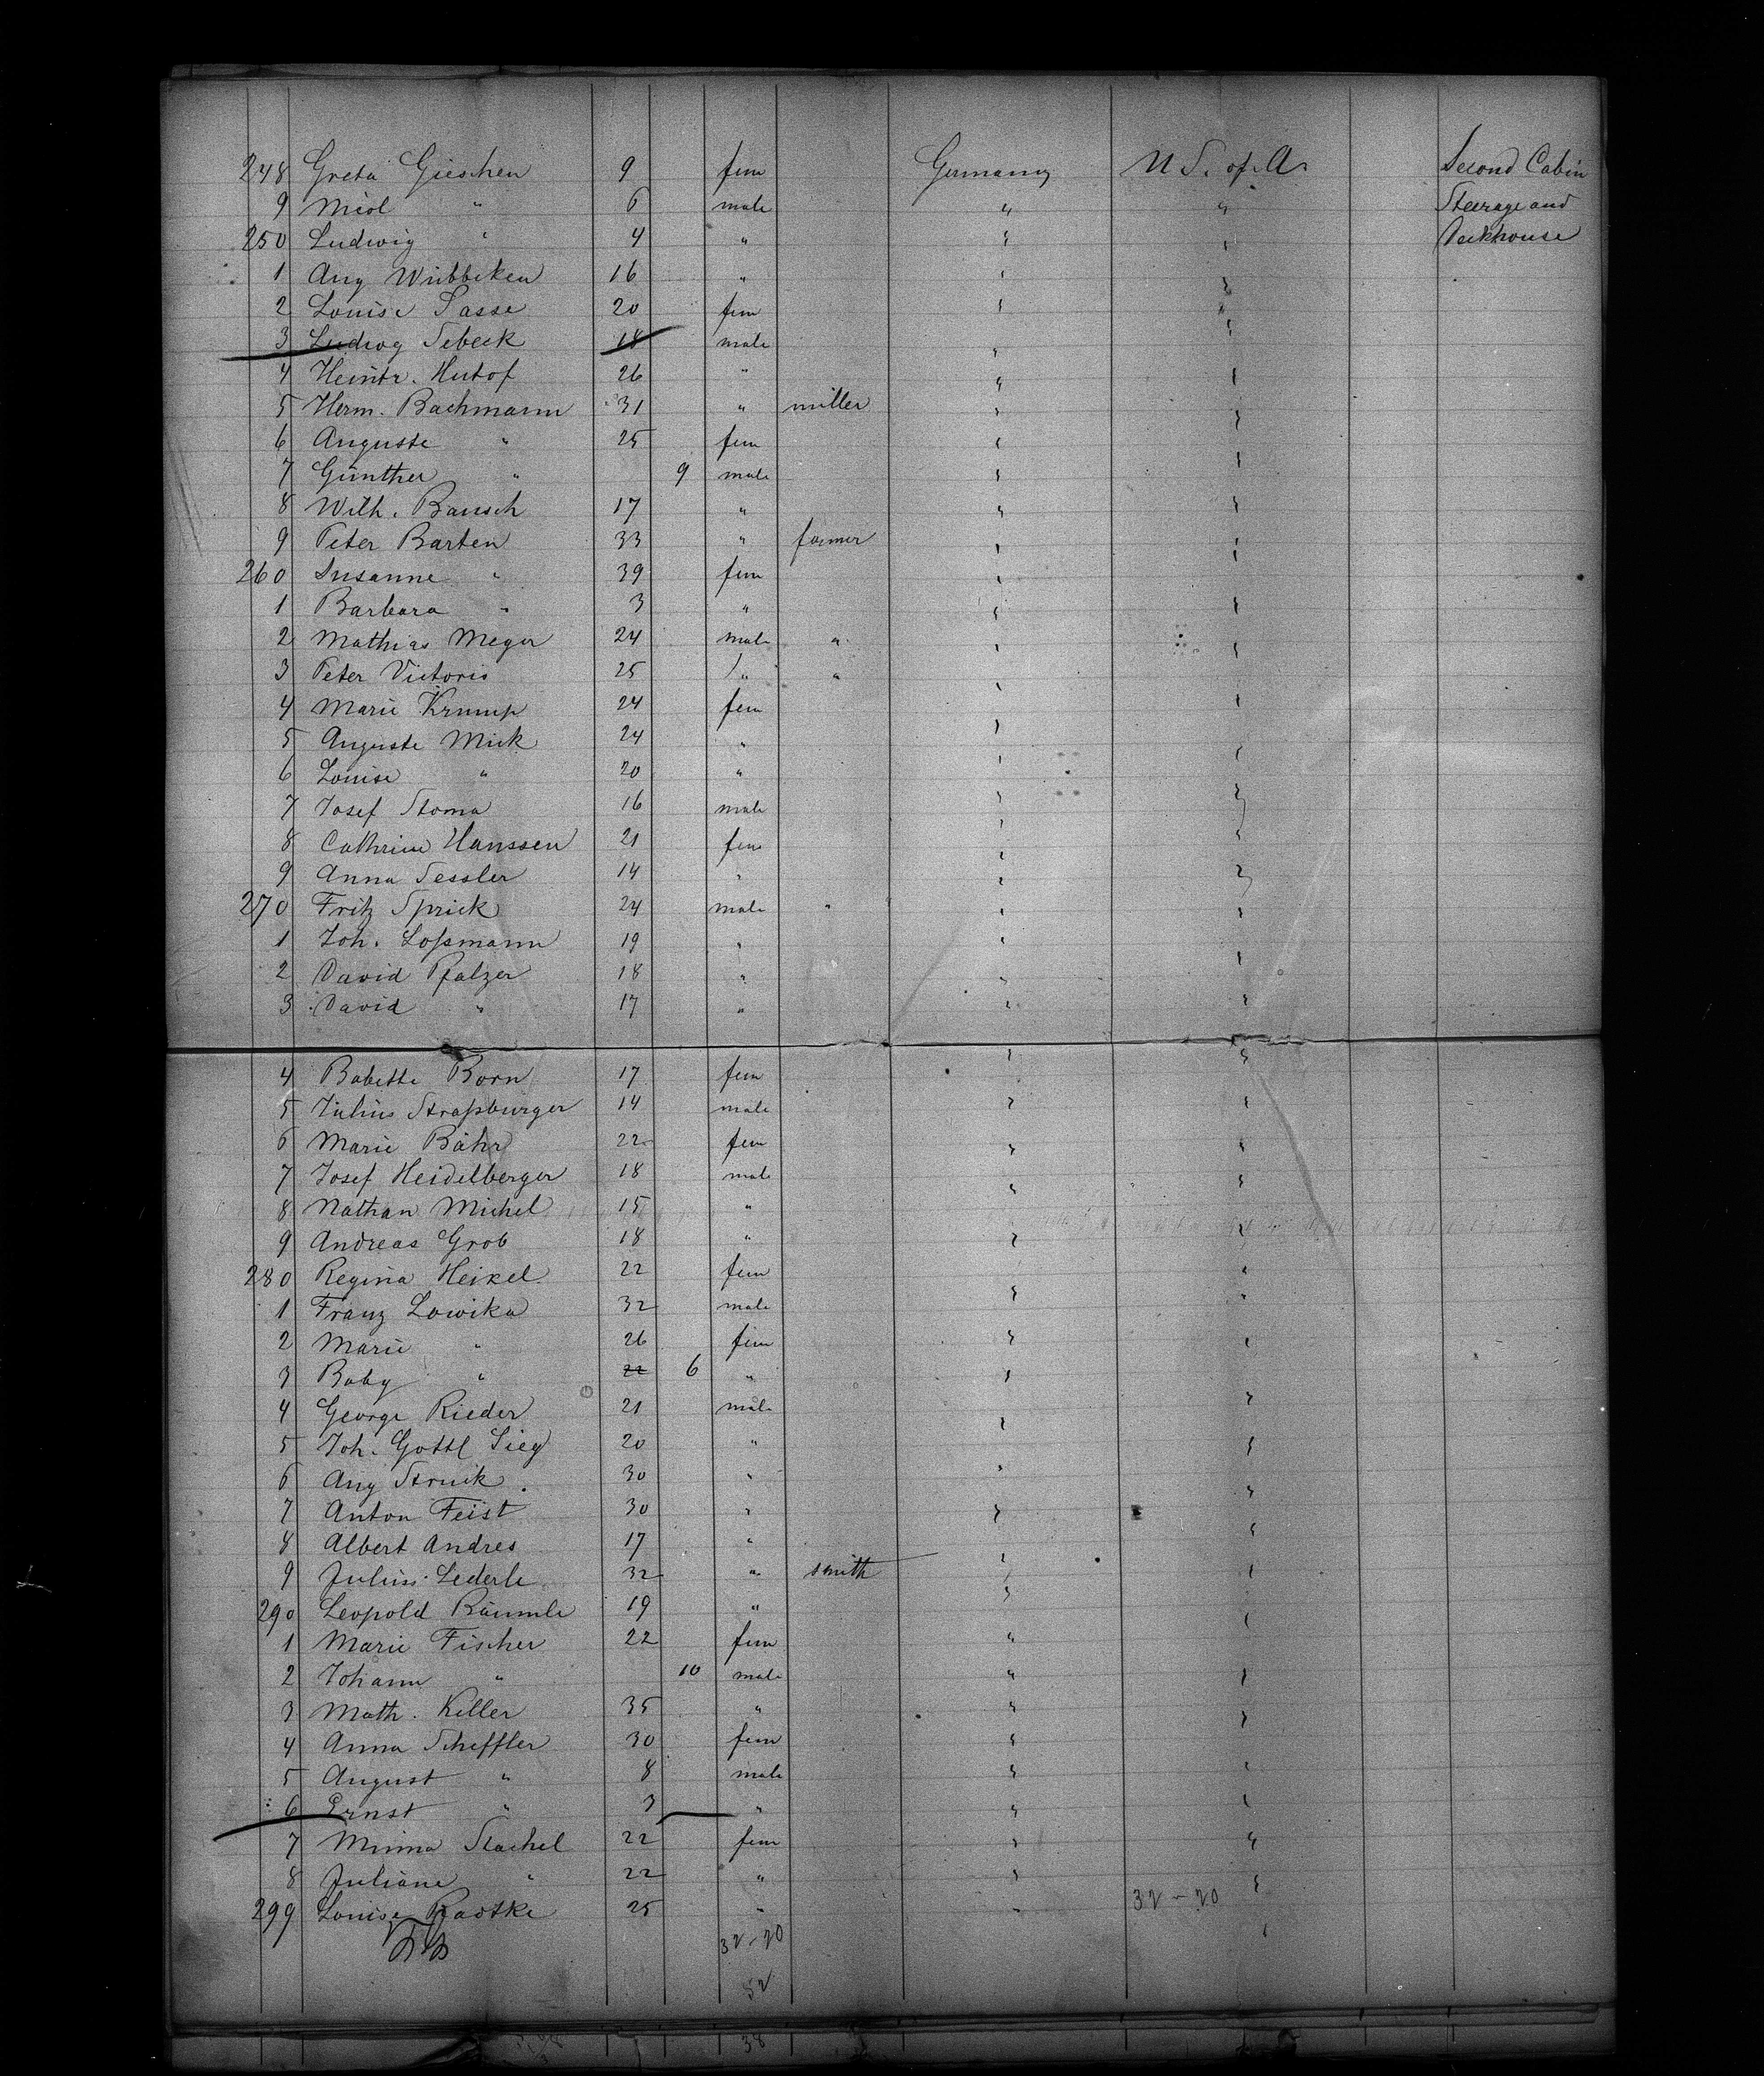 248 Greta Gieschen 9 fem Germany U S. of A. Second Cabin
9 Miol " 6 male " " Steerage and
250 Ludwig " 4 " " " Deckhouse
1 Aug Wübbeken 16 " " "
2 Louise Sasse 20 fem " "
3 Ludwog Sebeck 18 male " "
4 Heinr. Hutof 26 " " "
5 Herm. Bachmann 31 " miller " "
6 Auguste " 25 fem " "
7 Günther " 9 male " "
8 Wilh. Bausch 17 " " "
9 Peter Barten 33 " farmer " "
260 Susanne " 39 fem " "
1 Barbara " 3 " " "
2 Mathias Meyer 24 male " " "
3 Peter Victoris 25 " " " "
4 Marie Krump 24 fem " "
5 Auguste Mick 24 " " "
6 Louise " 20 " " "
7 Josef Stoma 16 male " "
8 Cathrine Hanssen 21 fem " "
9 Anna Sessler 14 " " "
270 Fritz Sprick 24 male " " "
1 Joh. Loßmann 19 " " "
2 David Pfalzer 18 " " "
3 David " 17 " " "
4 Babette Born 17 fem " "
5 Julius Straßburger 14 male " "
6 Marie Bähr 22 fem " "
7 Josef Heidelberger 18 male " "
8 Nathan Michel 15 " "
9 Andreas Grob 18 " " "
280 Regina Heikel 22 fem "
1 Franz Lowika 32 male " "
2 Marie " 26 fem " "
3 Baby " 22 6 " "
4 George Rieder 21 male " "
5 Joh. Gottl Sieg 20 " "
6 Aug Struik 30 " " "
7 Anton Feist 30 " " "
8 Albert Andres 17 " "
9 Julius Lederle 32 " smith " "
290 Leopold Bäumle 19 " " "
1 Marie Fischer 22 fem "
2 Johann " 10 male " "
3 Math. Keller 35 " " "
4 Anna Scheffler 30 fem "
5 August " 8 male " "
6 Ernst " 3 " " "
7 Minna Stachel 22 fem " "
8 Juliane " 22 " " "
299 Louise Radtke 25 " " 32-20
32-20
52
38